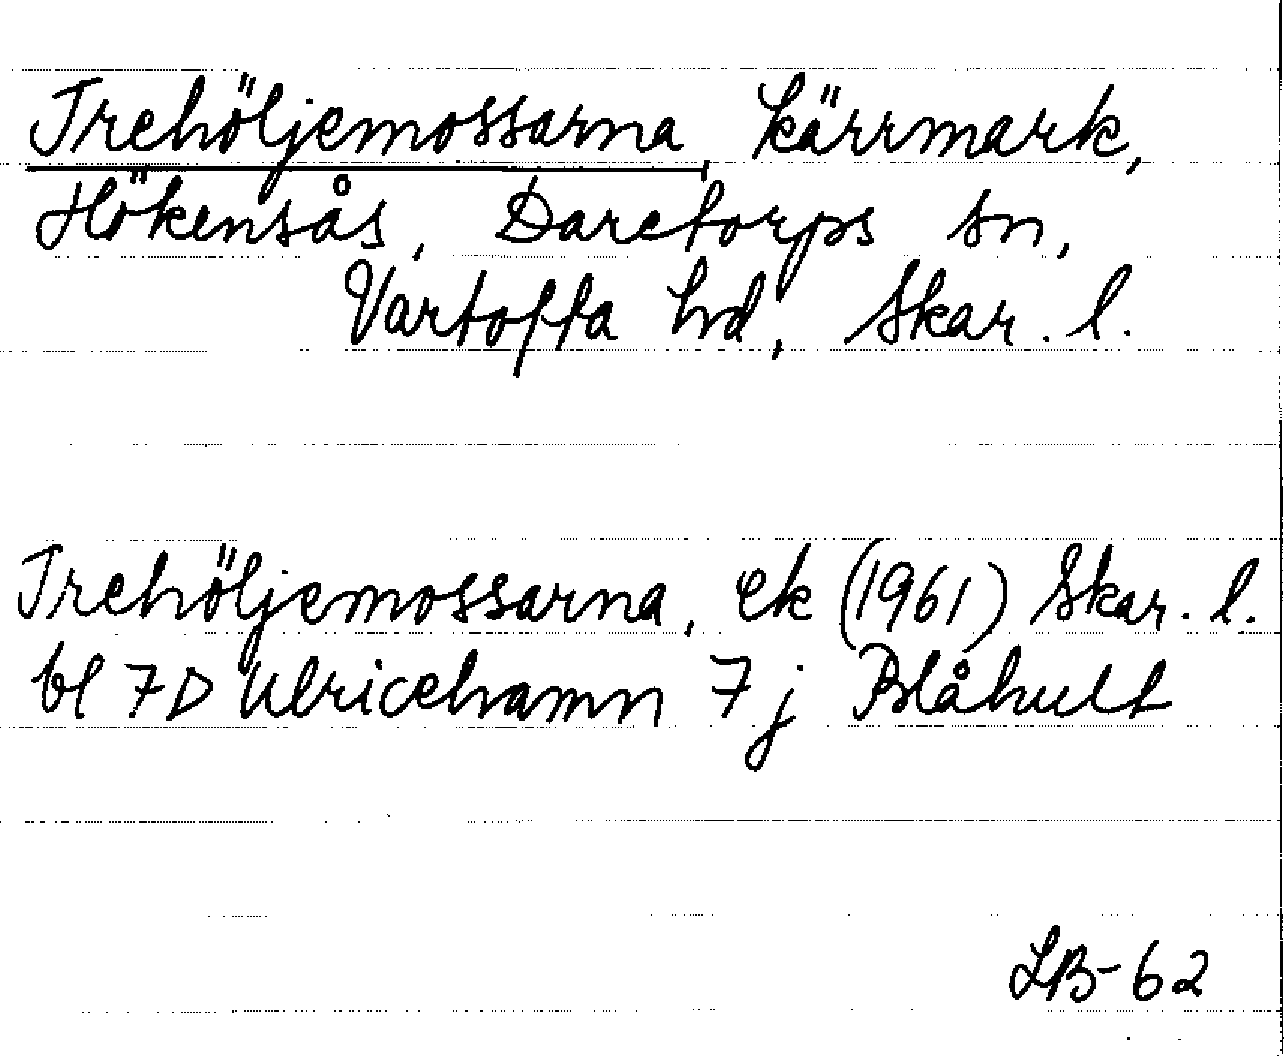 Trehöljemossarna, kärrmark,
Hökensås, Daretorps sn,
Vartofta hd, Skar. l.
Trehöljemossarna, ek (1961) Skar. l.
bl 7D Ulricehamn 7 j Blåhult
LB-62